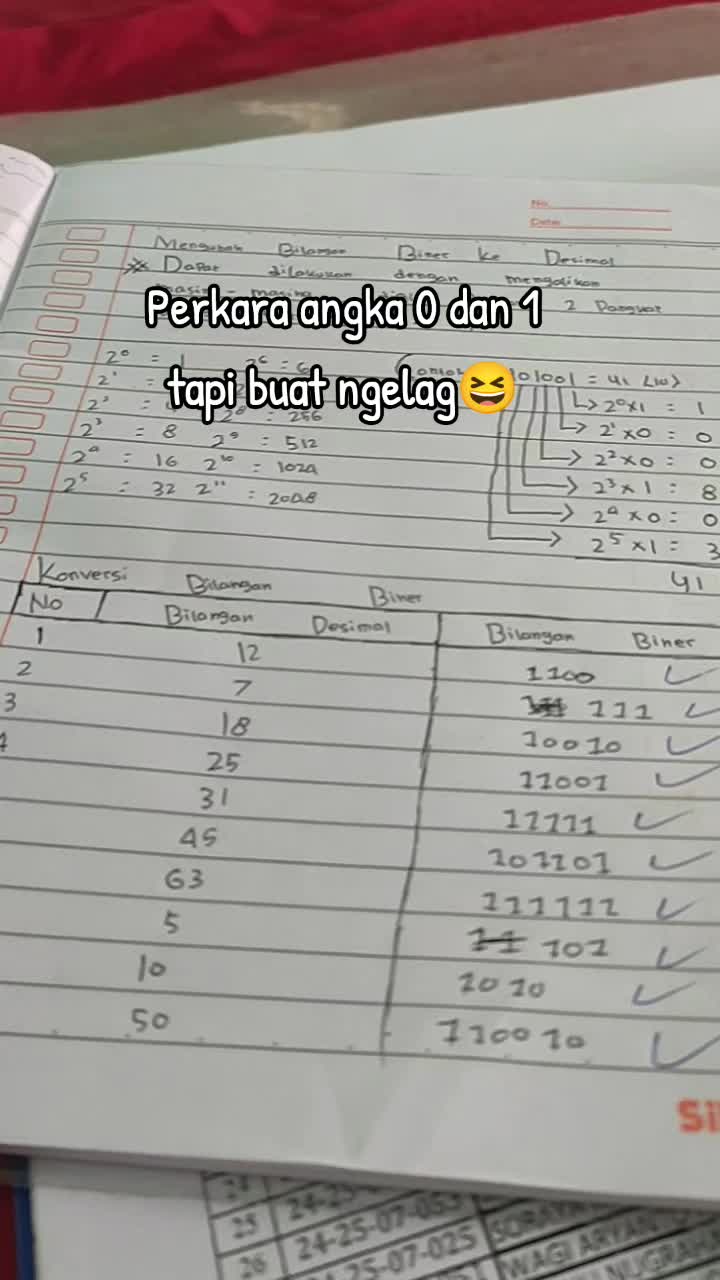 No.
Date
Mengubah Bilangan Biner ke Desimal
* Dapat dilakukan dengan mengalikan
masing - masing 2 Pangkat
Perkara angka 0 dan 1
tapi buat ngelag😆
2⁰ = 1 2⁶ =
2¹ =
2⁸ = 256
2³ = 8 2⁹ = 512
2⁴ = 16 2¹⁰ = 1024
2⁵ = 32 2¹¹ = 2048
101001 = 41 (10)
2⁰x1 = 1
2¹x0 = 0
2²x0 = 0
2³x1 = 8
2⁴x0 = 0
2⁵x1 = 3
41
Konversi Bilangan Biner
No Bilangan Desimal Bilangan Biner
1 12 1100 ✓
2 7 111 ✓
3 18 10010 ✓
25 11001 ✓
31 11111 ✓
45 101101 ✓
63 111111 ✓
5 101 ✓
10 1010 ✓
50 110010 ✓
Si
25 24-25-07-053
26 24-25-07-025 WAGI ARYAN
NUGRAHA